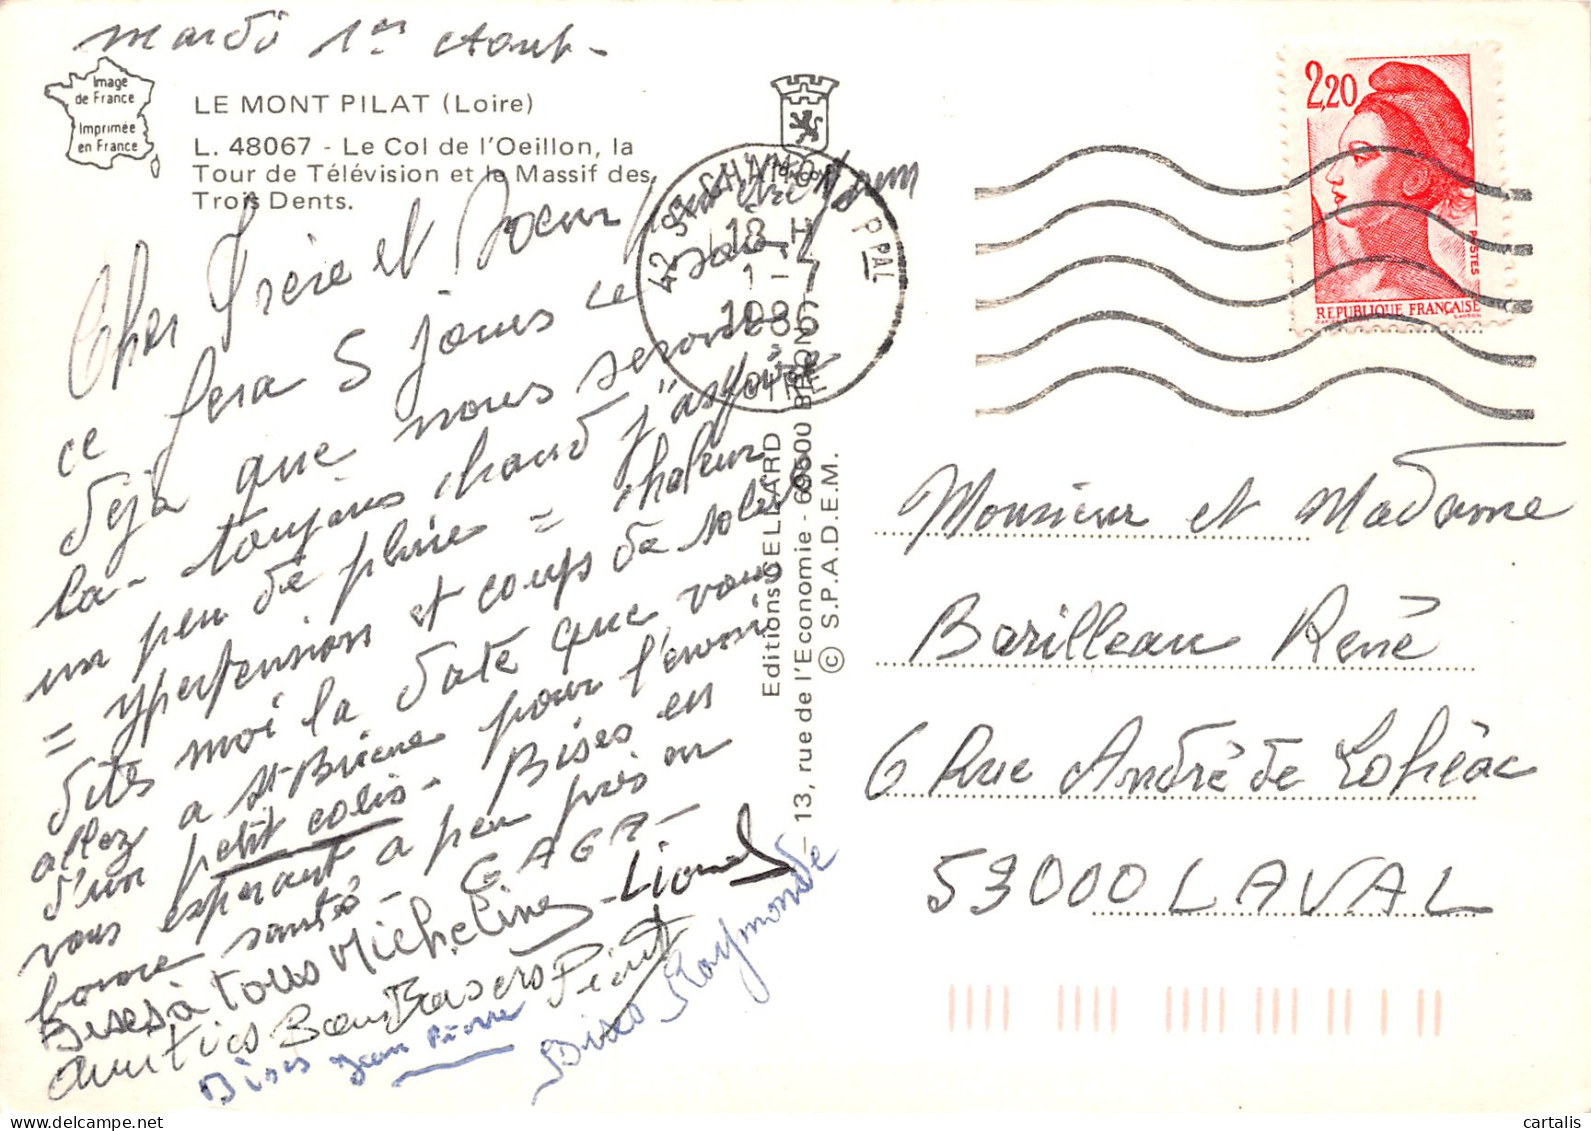 mardi 1er Aout -
Image
de France
Imprimée
en France
LE MONT PILAT (Loire)
L. 48067 - Le Col de l'Oeillon, la
Tour de Télévision et le Massif des
Trois Dents.
Cher Frère et Soeur
ce sera 5 jours ce soir
déjà que nous serons
la - toujours chaud j"
un peu de pluie = chaleur
= ypertension et coups de soleil
dites moi la date que vous
allez a St Brieuc pour l'envoi
d'un petit colis - Bises en
vous esperant a peu près en
bonne santé - GAGA -
Bises à tous Micheline - Lionel
amitiés Bons Baisers
Bises Jean Pierre
Bises Raymonde
42 ST CHAMOND PPAL
18 H
1 - 7
1986
LOIRE
Editions CELLARD
- 13, rue de l'Economie - 69500 BRON
© S.P.A.D.E.M.
2,20
POSTES
REPUBLIQUE FRANÇAISE
Monsieur et Madame
Barilleau René
6 Rue André de Lohéac
53000 LAVAL
cartalis